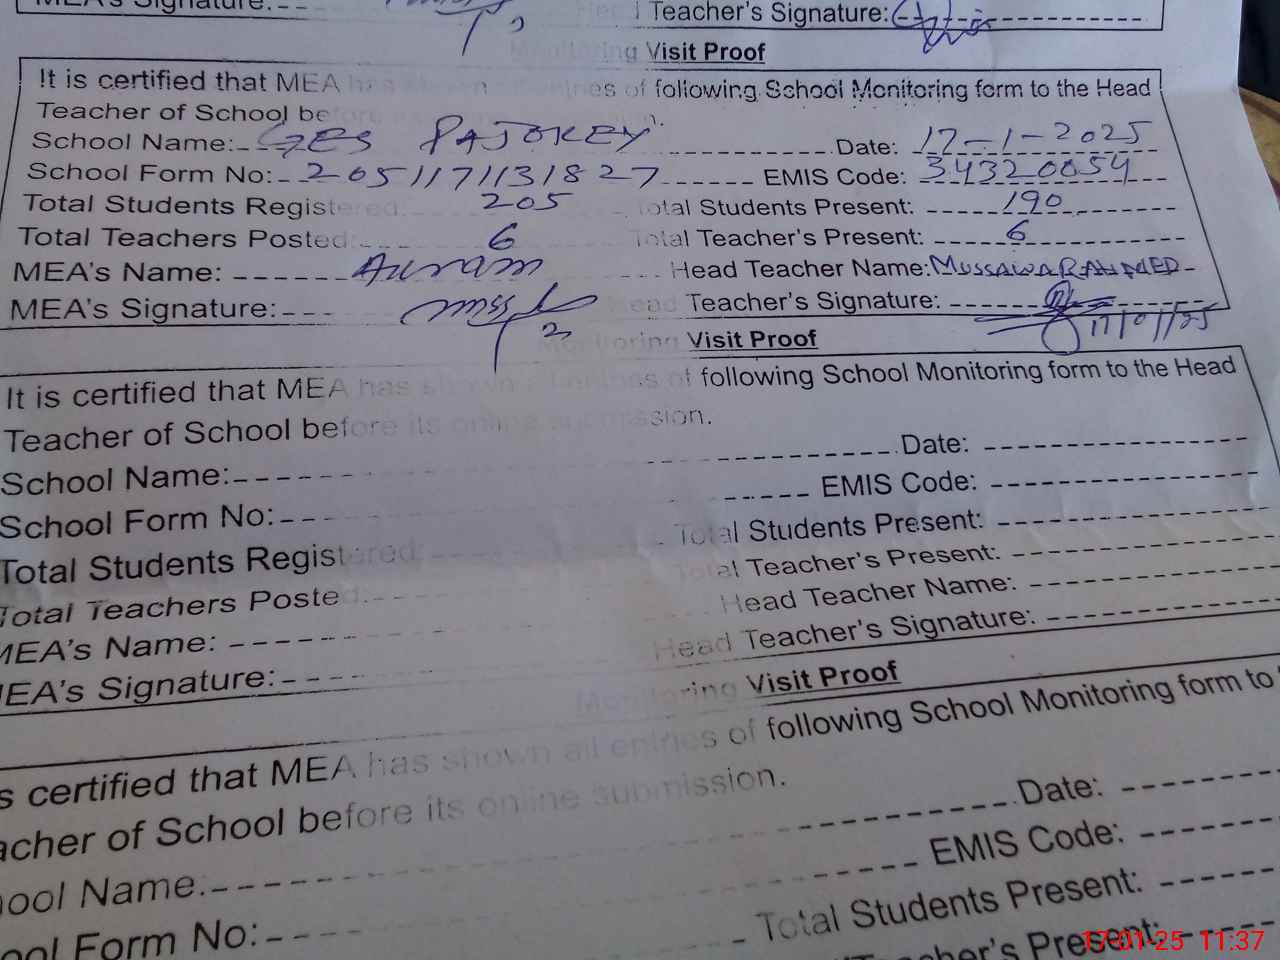 MEA's Signature: Head Teacher's Signature:
Monitoring Visit Proof
It is certified that MEA has shown all entries of following School Monitoring form to the Head
Teacher of School before its online submission.
School Name: GES PAJOKEY Date: 17-1-2025
School Form No: 20511711131827 EMIS Code: 34320054
Total Students Registered: 205 Total Students Present: 190
Total Teachers Posted: 6 Total Teacher's Present: 6
MEA's Name: Head Teacher Name: MUSSAWAR AHMED
MEA's Signature: Head Teacher's Signature: 17/01/25
Monitoring Visit Proof
It is certified that MEA has shown all entries of following School Monitoring form to the Head
Teacher of School before its online submission.
School Name: Date:
School Form No: EMIS Code:
Total Students Registered: Total Students Present:
Total Teachers Posted: Total Teacher's Present:
MEA's Name: Head Teacher Name:
MEA's Signature: Head Teacher's Signature:
Monitoring Visit Proof
s certified that MEA has shown all entries of following School Monitoring form to
acher of School before its online submission.
ool Name: Date:
ool Form No: EMIS Code:
Total Students Present:
cher's Present:
17-01-25 11:37